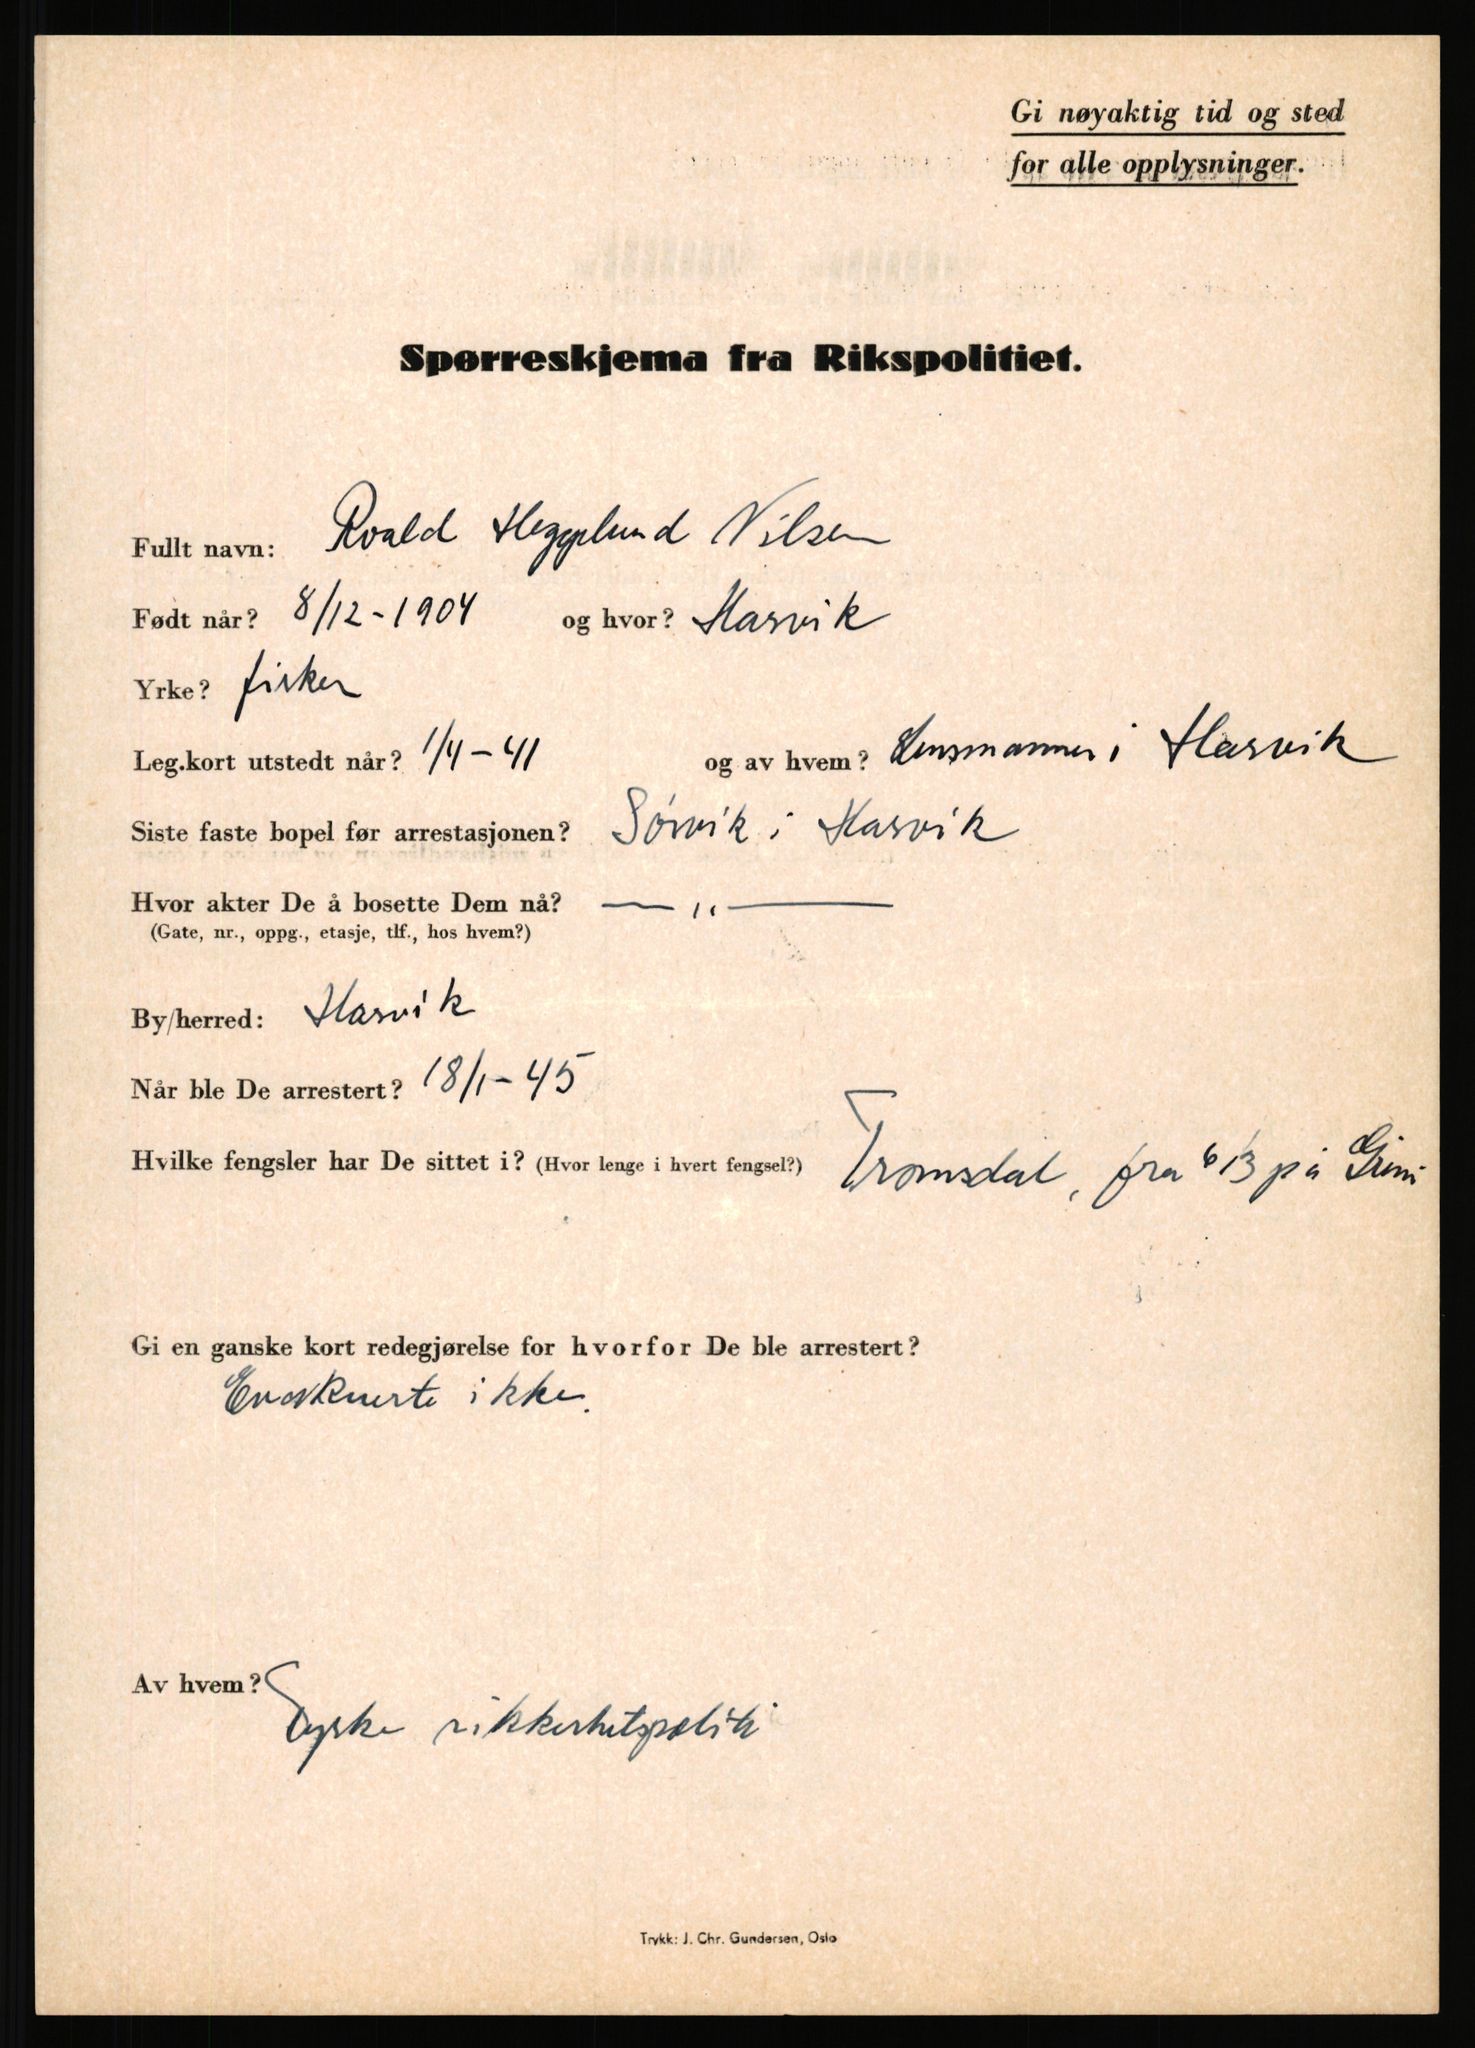 Gi nøyaktig tid og sted
for alle opplysninger.
Spørreskjema fra Rikspolitiet.
Fullt navn: Roald Heggelund Nilsen
Født når? 8/12-1904 og hvor? Hasvik
Yrke? fisker
Leg.kort utstedt når? 1/4-41 og av hvem? Lensmannen i Hasvik
Siste faste bopel før arrestasjonen? Sørvik i Hasvik
Hvor akter De å bosette Dem nå? — ,, —
(Gate, nr., oppg., etasje, tlf., hos hvem?)
By/herred: Hasvik
Når ble De arrestert? 18/1-45
Hvilke fengsler har De sittet i? (Hvor lenge i hvert fengsel?) Tromsdal, fra 6/3 på Grini
Gi en ganske kort redegjørelse for hvorfor De ble arrestert?
Evakuerte ikke.
Av hvem?
Tyske sikkerhetspoliti
Trykk: J. Chr. Gundersen, Oslo